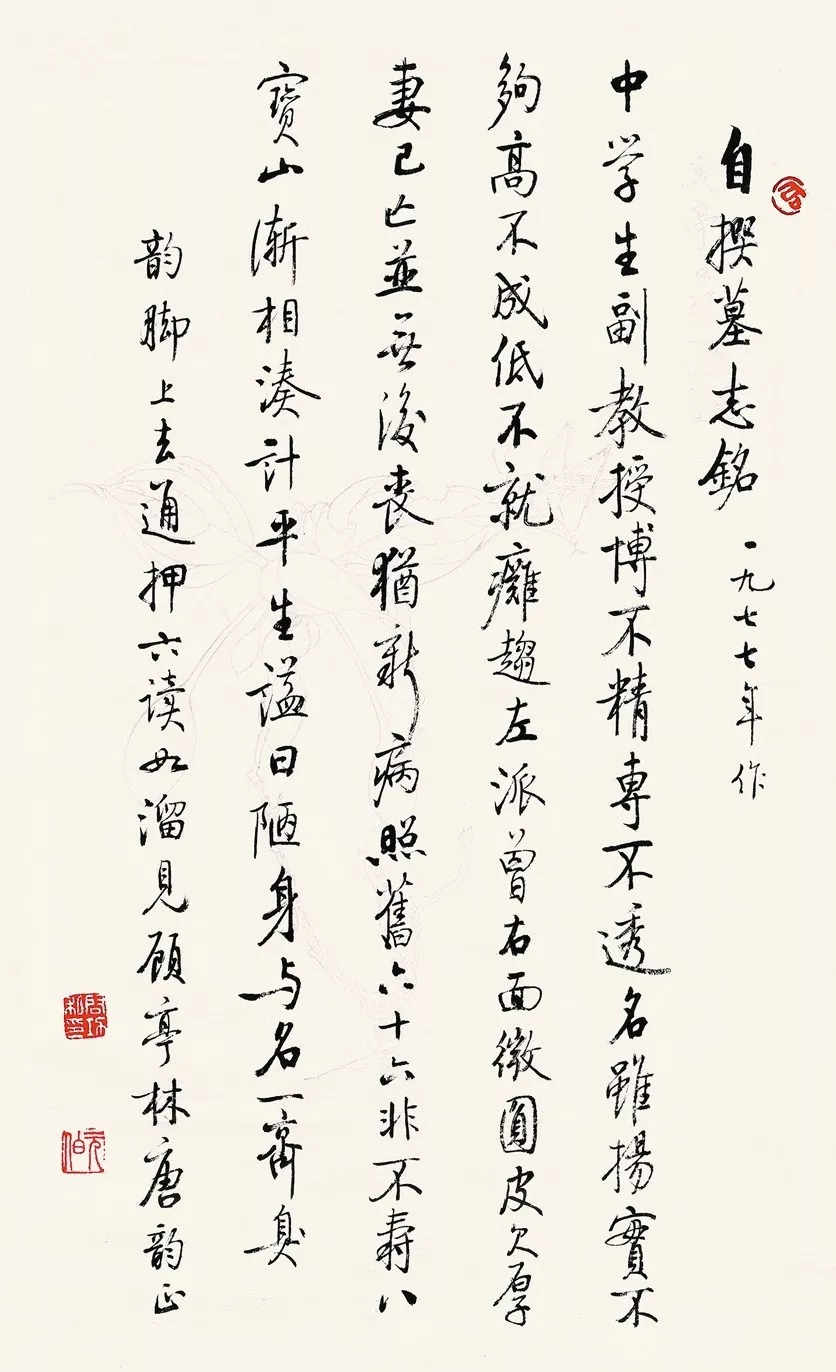 自撰墓志銘 一九七七年作
中学生副教授博不精專不透名雖揚實不
夠高不成低不就癱趨左派曾右面微圓皮欠厚
妻已亡並無後喪猶新病照舊六十六非不壽八
寶山漸相湊計平生謚曰陋身与名一齊臭
韵脚上去通押六读如溜見顧亭林唐韵正